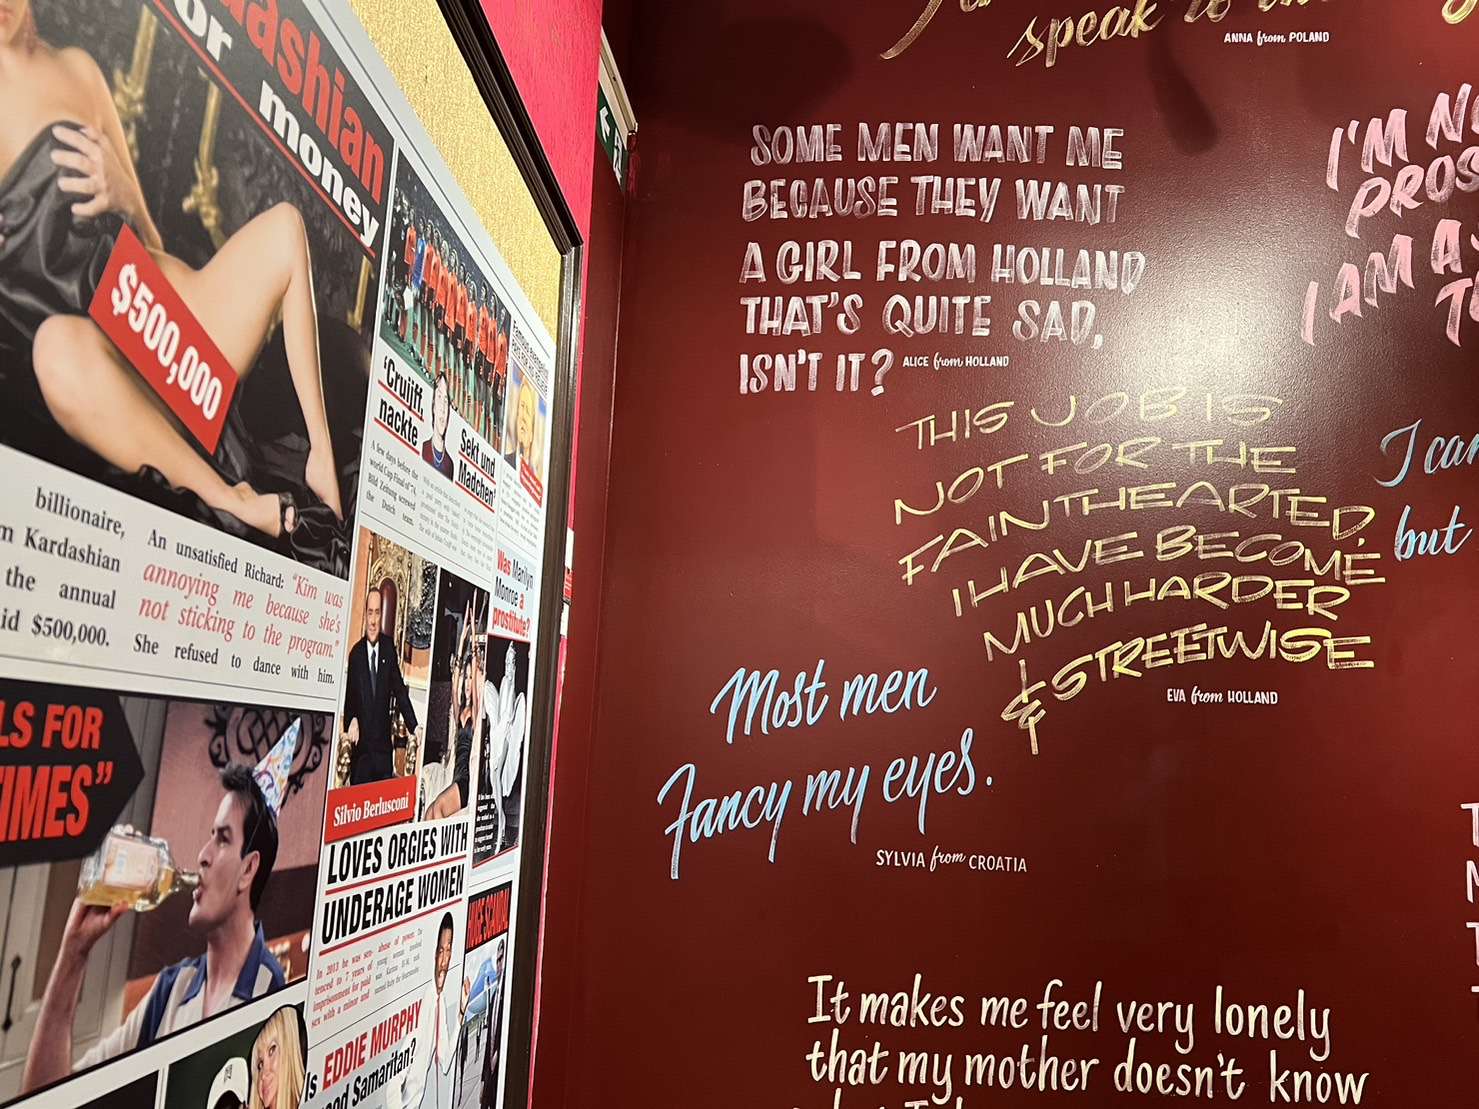 ashian
or money
$500,000
billionaire,
m Kardashian
the annual
id $500,000.
An unsatisfied Richard: "Kim was
annoying me because she's
not sticking to the program."
She refused to dance with him.
LS FOR
TIMES"
'Cruijff,
nackte
Sekt und
Mädchen'
A few days before the
world Cup Final of '74,
Bild Zeitung screwed
the Dutch team.
Was Marilyn
Monroe a
prostitute?
Silvio Berlusconi
LOVES ORGIES WITH
UNDERAGE WOMEN
In 2013 he was sen-
tenced to 7 years of
imprisonment for paid
sex with a minor and
abuse of power.
HUGE SCANDAL
Is EDDIE MURPHY
ood Samaritan?
speak to
ANNA from POLAND
SOME MEN WANT ME
BECAUSE THEY WANT
A GIRL FROM HOLLAND
THAT'S QUITE SAD,
ISN'T IT?
ALICE from HOLLAND
I'M N
PROS
I AM A
T
THIS JOB IS
NOT FOR THE
FAINTHEARTED.
I HAVE BECOME
MUCH HARDER
& STREETWISE
EVA from HOLLAND
I can
but
Most men
Fancy my eyes.
SYLVIA from CROATIA
It makes me feel very lonely
that my mother doesn't know